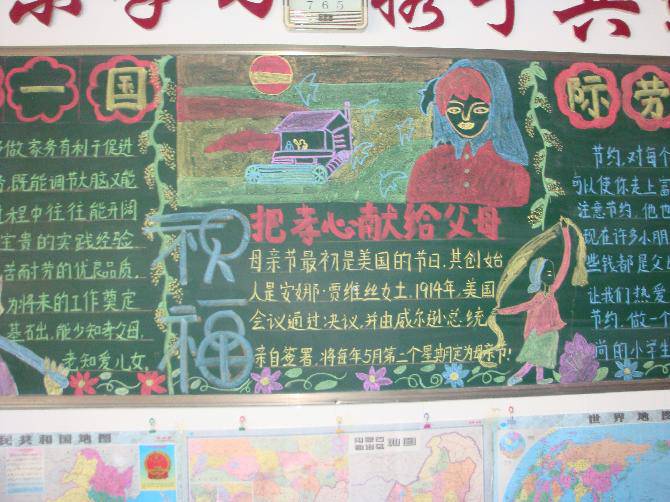 765
一国
际劳
做家务有利于促进
既能调节大脑又能
程中往往能开阔
宝贵的实践经验
苦而耐劳的优良品质,
为将来的工作奠定
基石出,能少知孝父母,
老知爱儿女
祝福
把孝心献给父母
母亲节最初是美国的节日,其创始
人是安娜·贾维丝女士,1914年,美国
会议通过决议,并由威尔逊总统
亲自签署,将每年5月第二个星期定为母亲节!
节约,对每个
可以使你走上
注意节约,他也
现在许多小朋
些钱都是父
让我们热爱
节约,做一个
尚的小学生
民共和国地图
世界地